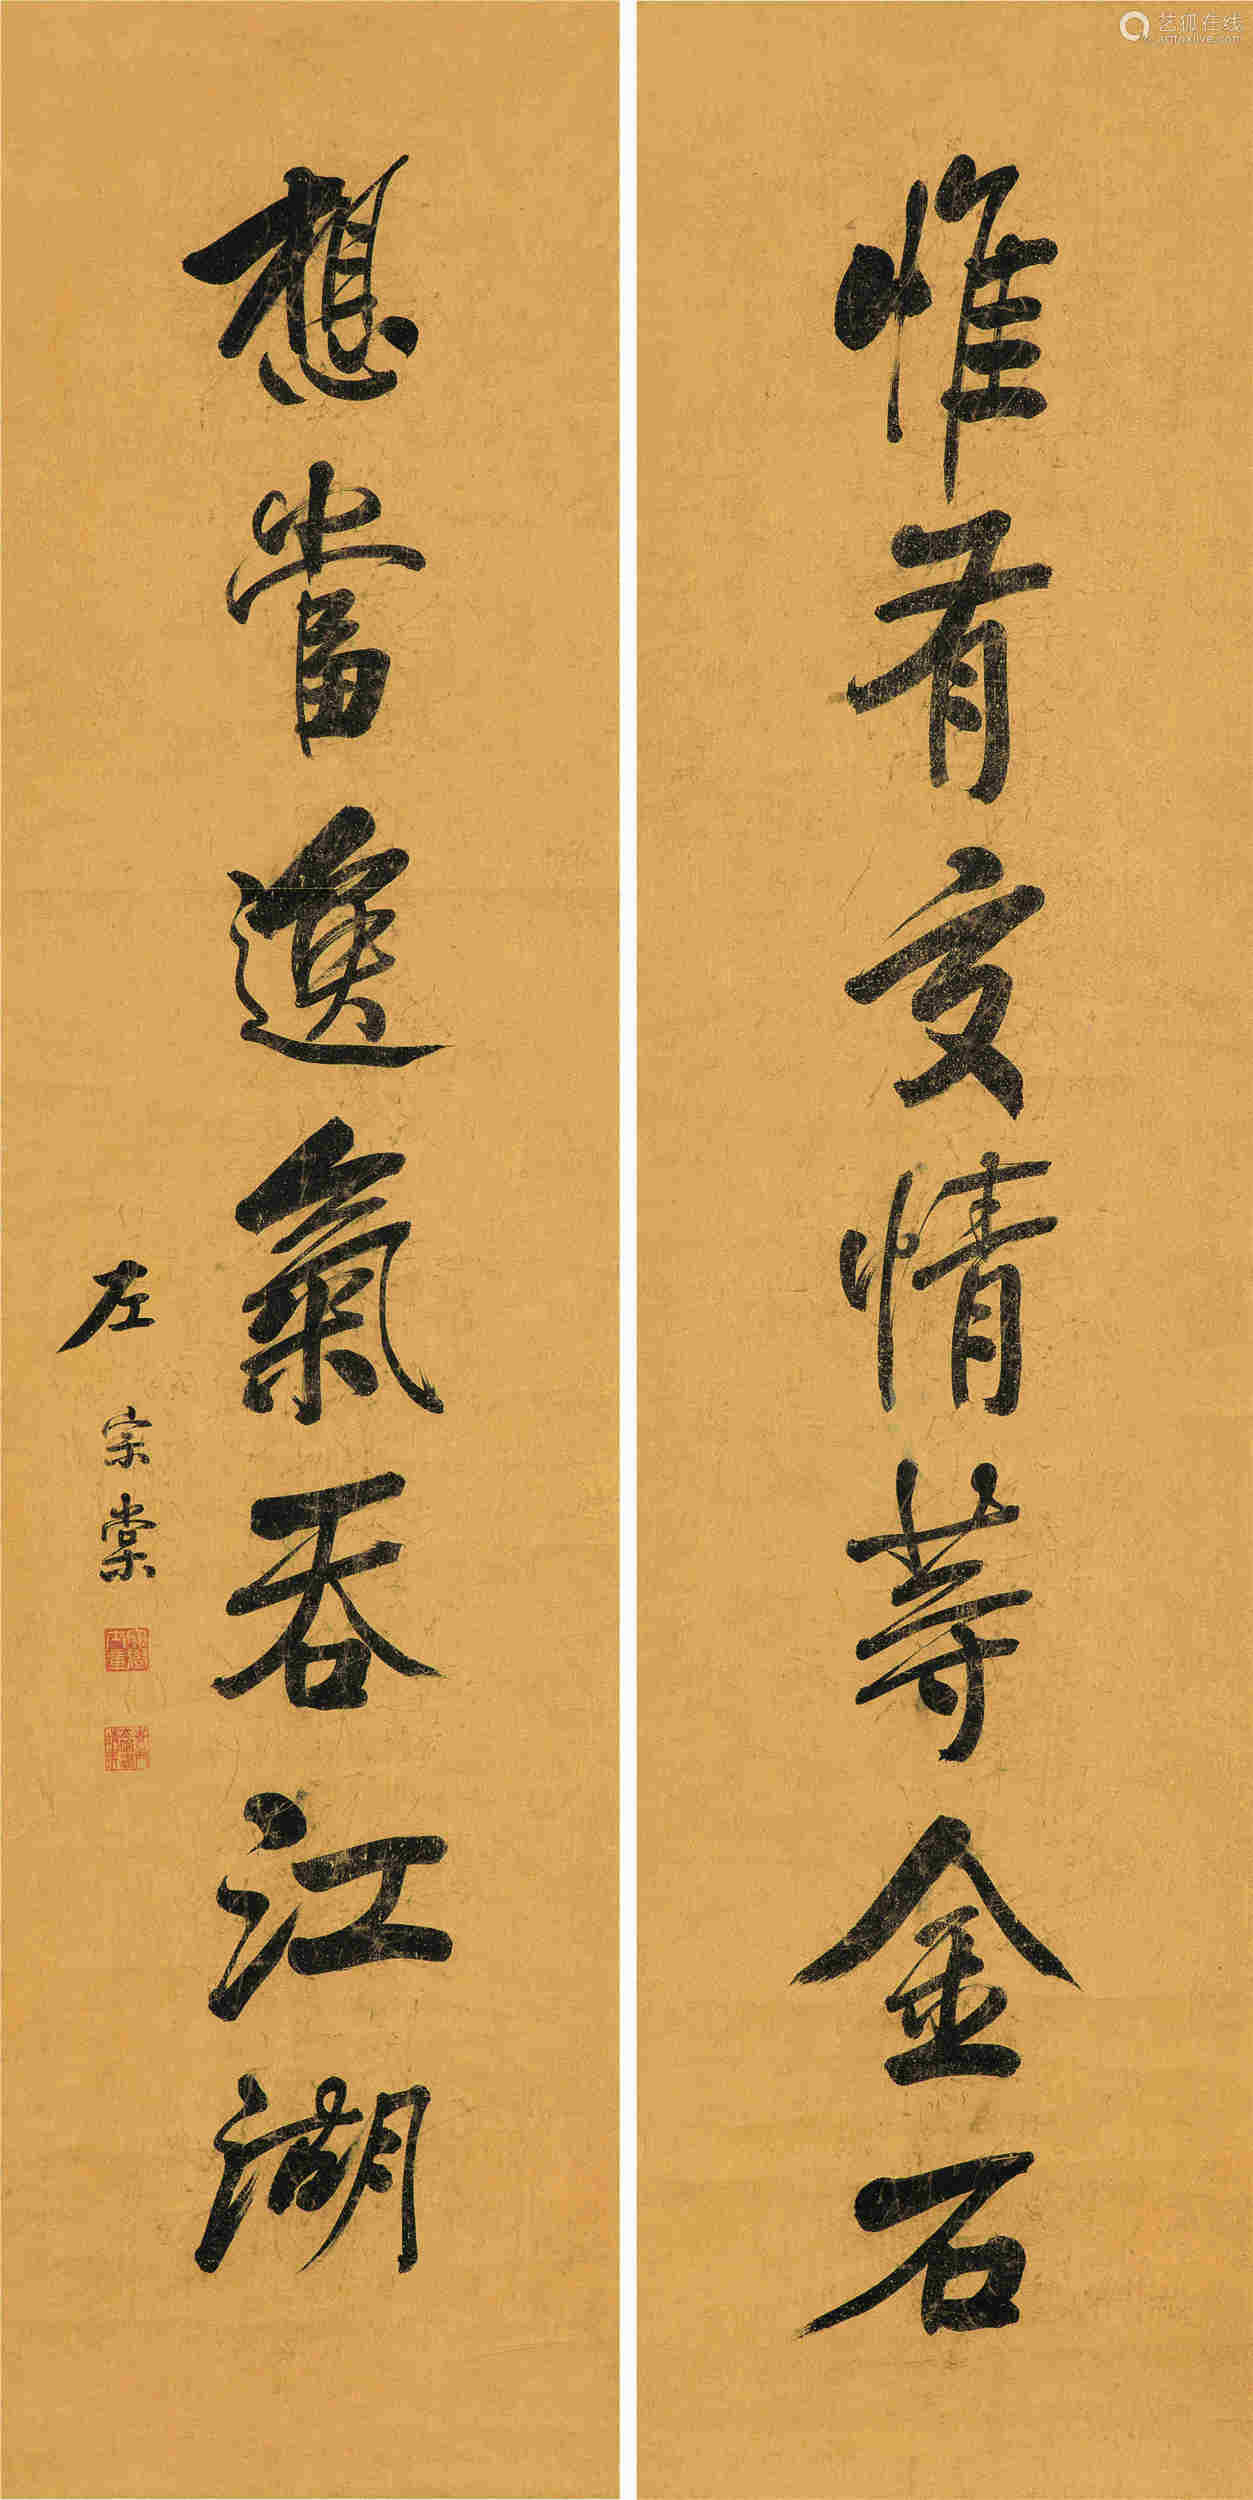 艺狐在线
artfoxlive.com
惟有交情等金石
想當逸氣吞江湖
左宗棠